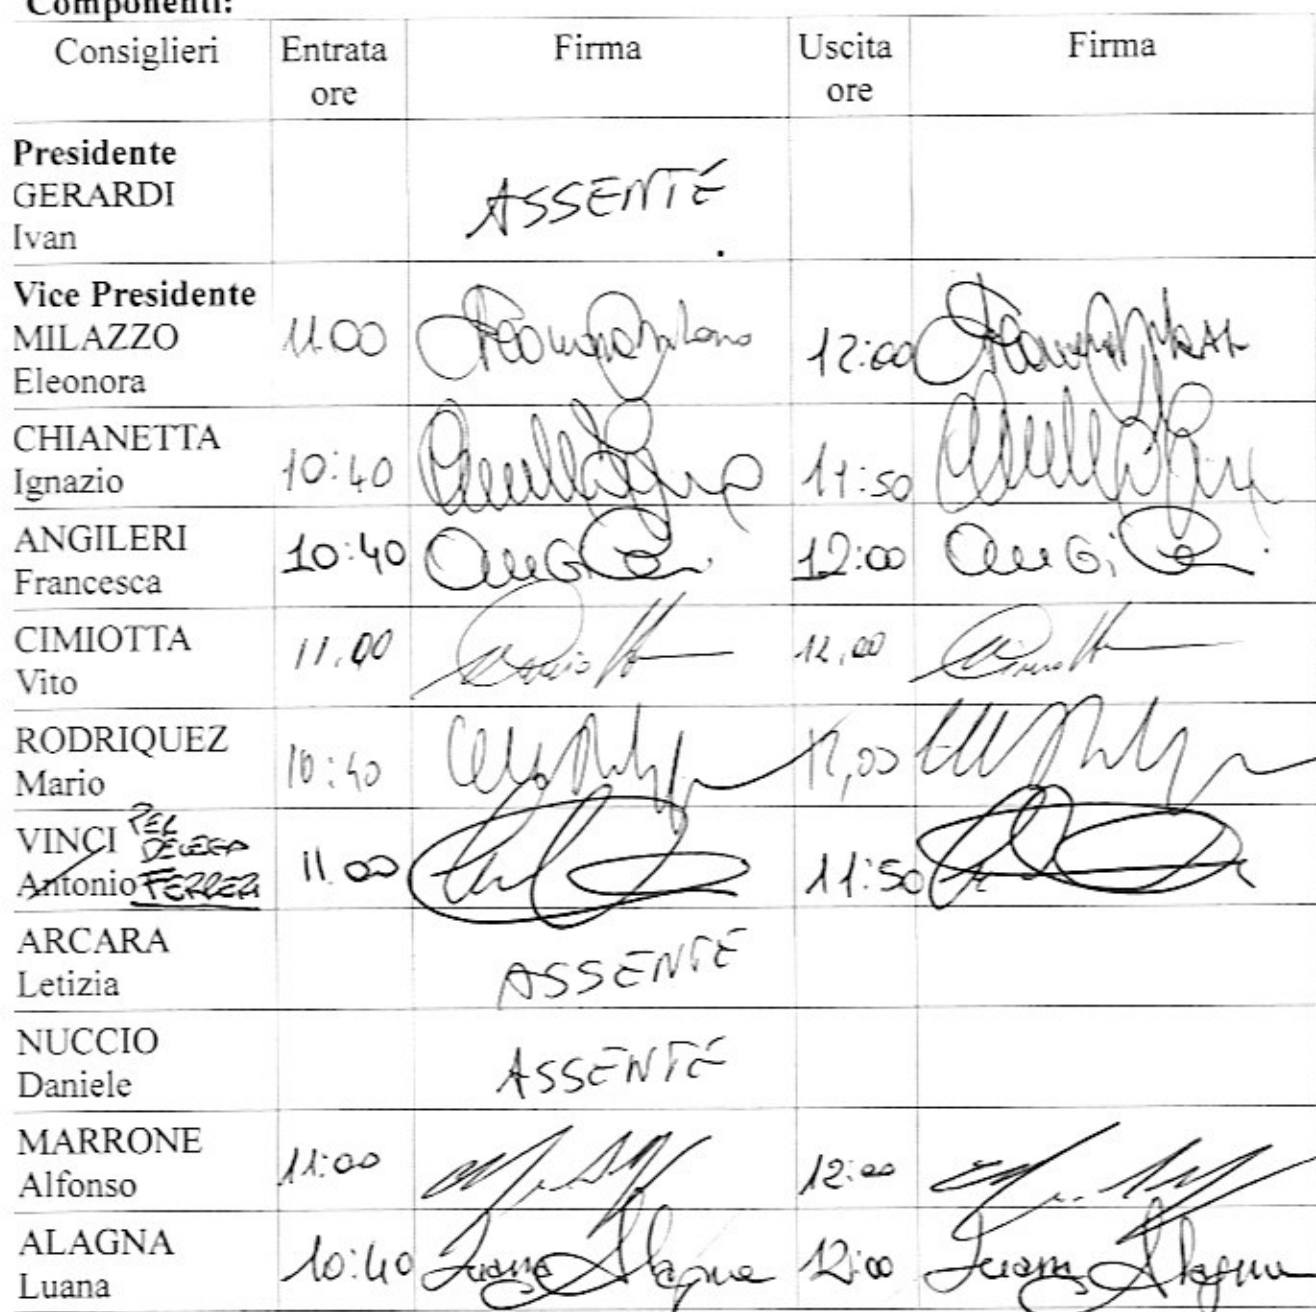 Componenti:
Consiglieri Entrata ore Firma Uscita ore Firma
Presidente
GERARDI
Ivan
ASSENTE
Vice Presidente
MILAZZO
Eleonora
11.00 12:00
CHIANETTA
Ignazio
10:40 11:50
ANGILERI
Francesca
10:40 12:00
CIMIOTTA
Vito
11.00 12,00
RODRIQUEZ
Mario
10:40 12,00
VINCI PER DELEGA
Antonio FERRERI
11.00 11:50
ARCARA
Letizia
ASSENTE
NUCCIO
Daniele
ASSENTE
MARRONE
Alfonso
11:00 12:00
ALAGNA
Luana
10:40 Luana Alagna 12:00 Luana Alagna